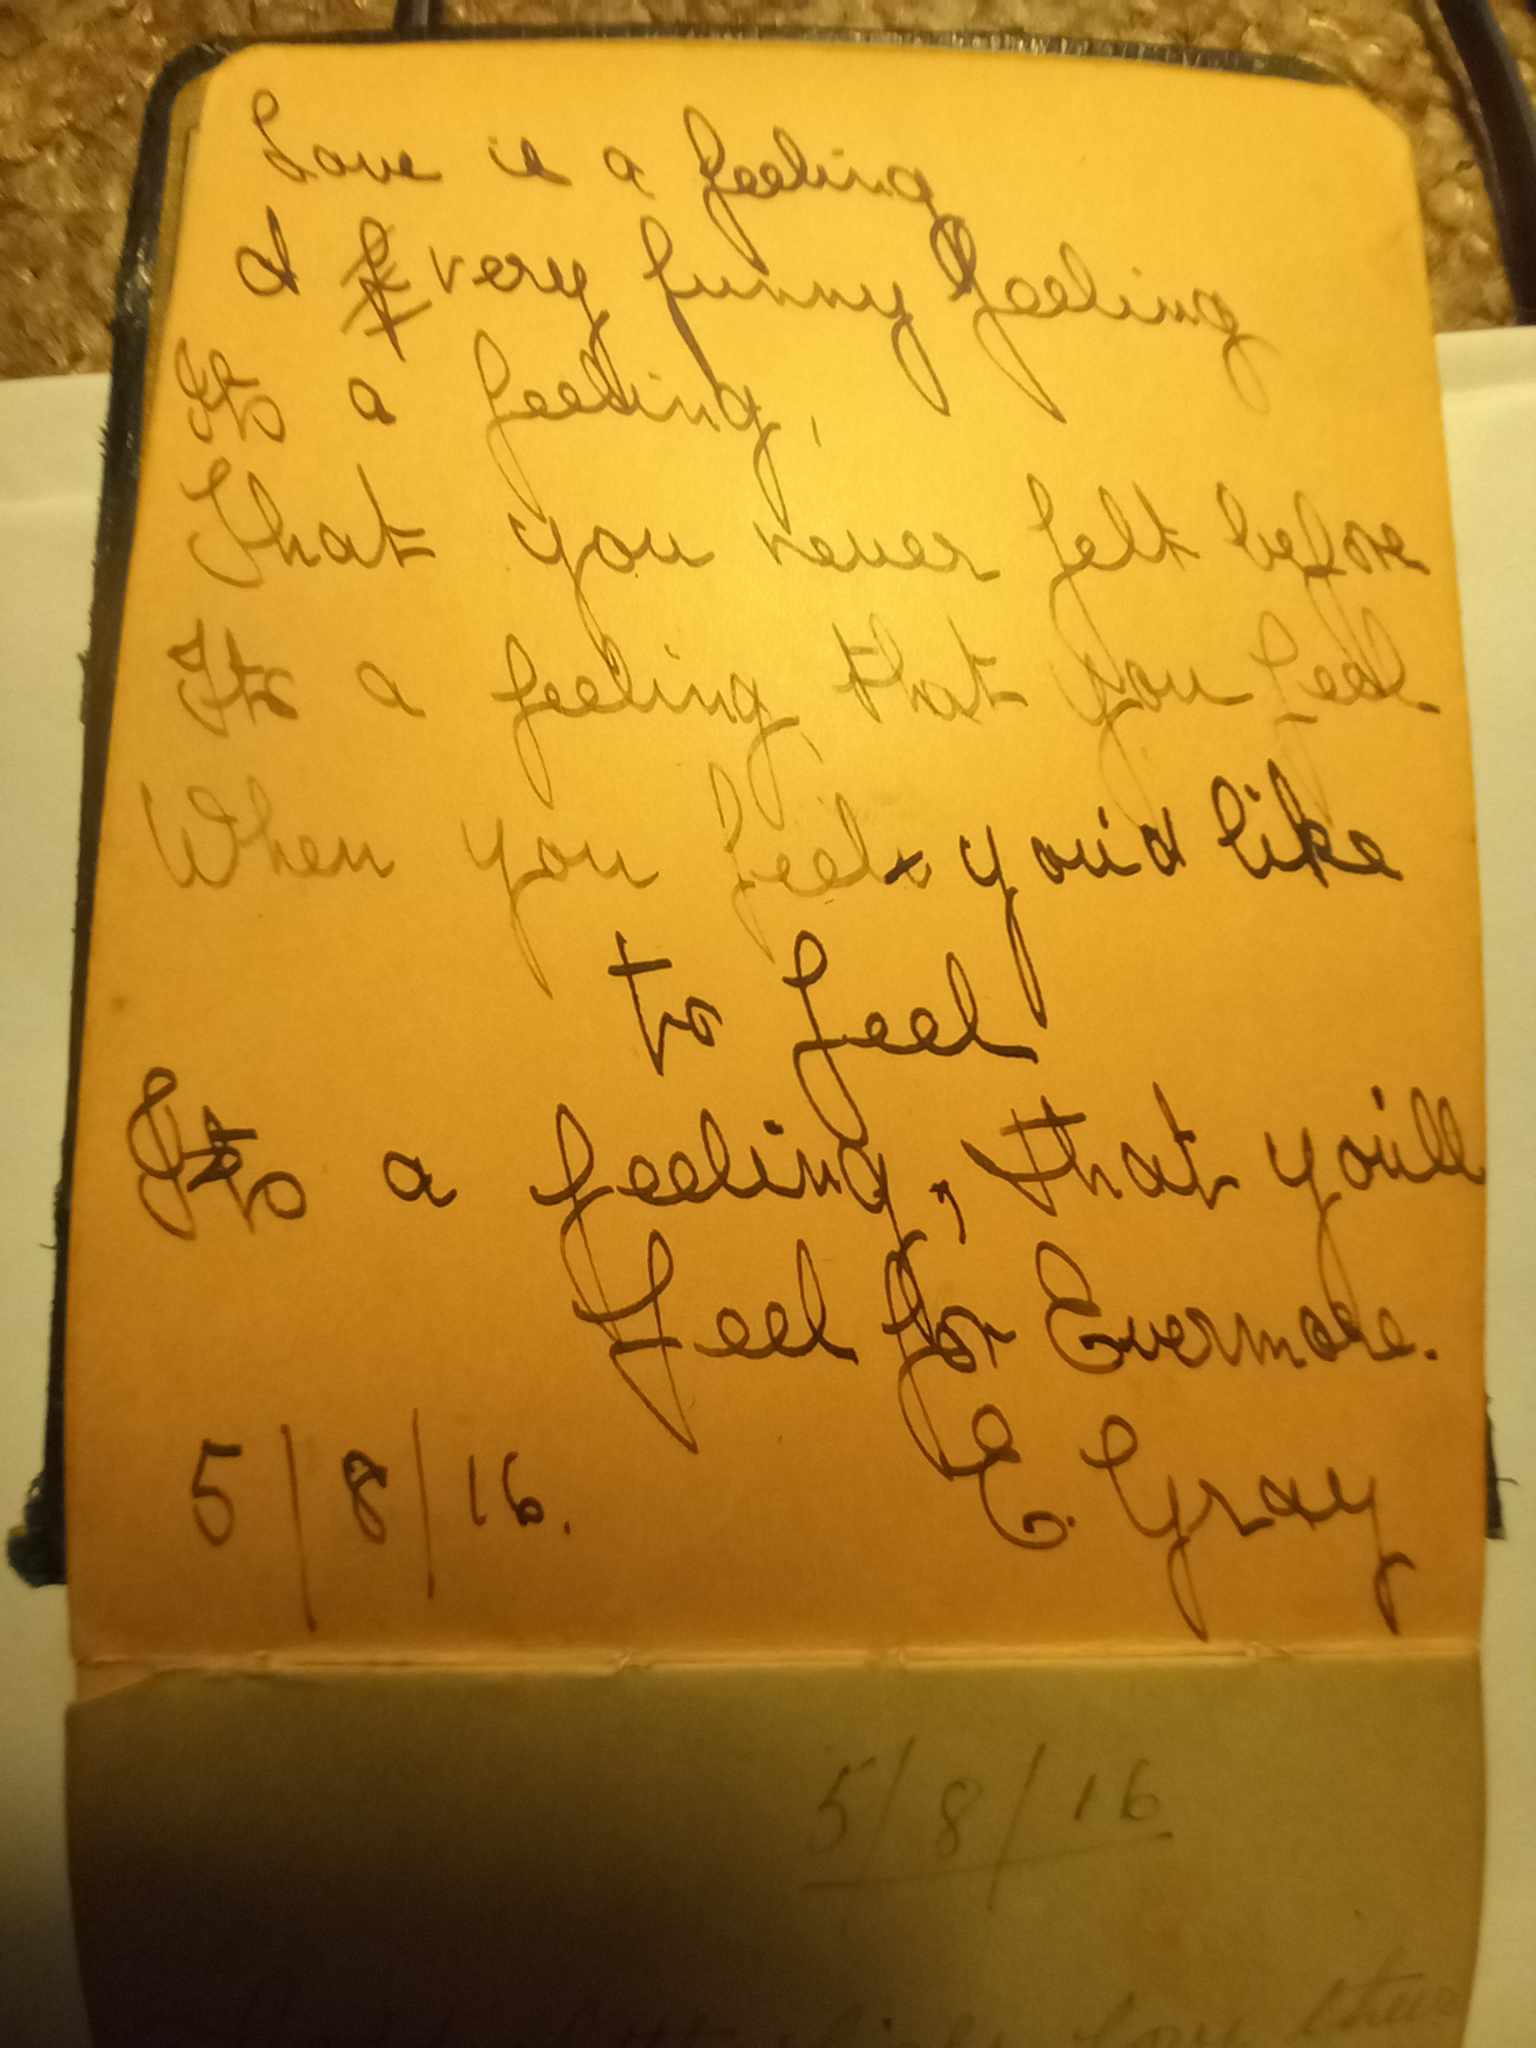 Love is a feeling
A very funny feeling
Its a feeling,
That you never felt before
Its a feeling, that you feel
When you feel you'd like
to feel
Its a feeling, that you'll
feel for Evermore.
5/8/16. E. Gray
5/8/16